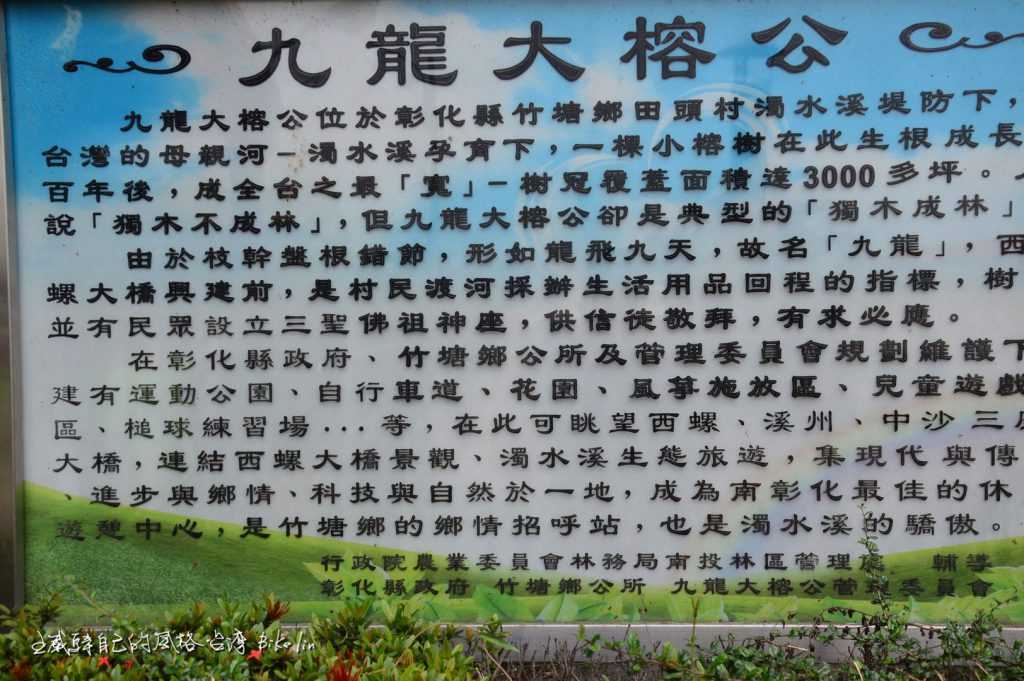 九龍大榕公
九龍大榕公位於彰化縣竹塘鄉田頭村濁水溪堤防下，
台灣的母親河－濁水溪孕育下，一棵小榕樹在此生根成長
百年後，成全台之最「寬」－樹冠覆蓋面積達3000多坪。
說「獨木不成林」，但九龍大榕公卻是典型的「獨木成林」
由於枝幹盤根錯節，形如龍飛九天，故名「九龍」，西
螺大橋興建前，是村民渡河採辦生活用品回程的指標，樹
並有民眾設立三聖佛祖神座，供信徒敬拜，有求必應。
在彰化縣政府、竹塘鄉公所及管理委員會規劃維護下
建有運動公園、自行車道、花園、風箏施放區、兒童遊戲
區、槌球練習場...等，在此可眺望西螺、溪州、中沙三座
大橋，連結西螺大橋景觀、濁水溪生態旅遊，集現代與傳
、進步與鄉情、科技與自然於一地，成為南彰化最佳的休
遊憩中心，是竹塘鄉的鄉情招呼站，也是濁水溪的驕傲。
行政院農業委員會林務局南投林區管理處 輔導
彰化縣政府 竹塘鄉公所 九龍大榕公管理委員會
自己的風格 台灣 Biko lin